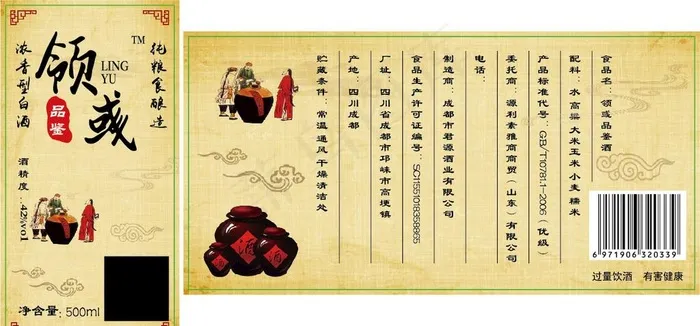 领彧
TM
LING
YU
品鉴
纯粮食酿造
浓香型白酒
酒精度:42%vol
净含量:500ml
食品名:领彧品鉴酒
配料:水 高粱 大米 玉米 小麦 糯米
产品标准代号:GB/T10781.1-2006(优级)
委托商:源利素雅商商贸(山东)有限公司
电话:
制造商:成都市君源酒业有限公司
食品生产许可证编号:SC11551018358865
厂址:四川省成都市邛崃市高埂镇
产地:四川成都
贮藏条件:常温通风干燥清洁处
酒
6 971906 320339
过量饮酒 有害健康